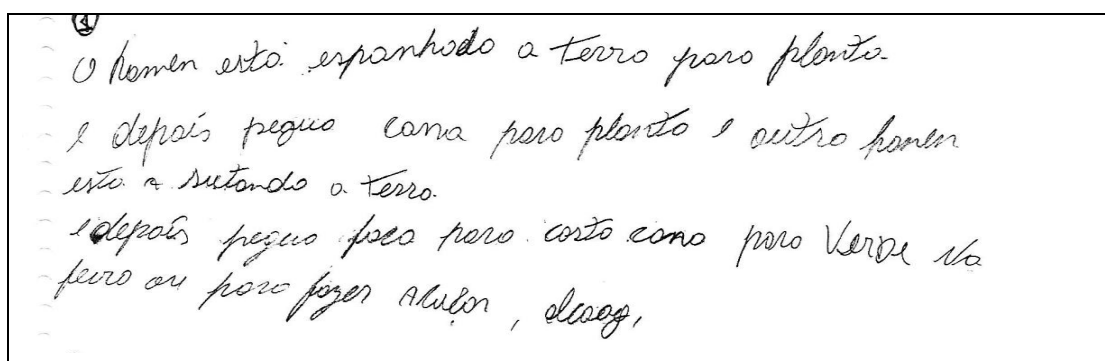 1
O homen está espanhado a terra para planta.
e depois pegua cana para planta e outro homen
esta a sutando a terra.
e depois pegua faca para corta cana para Verde Na
feira ou para fazer